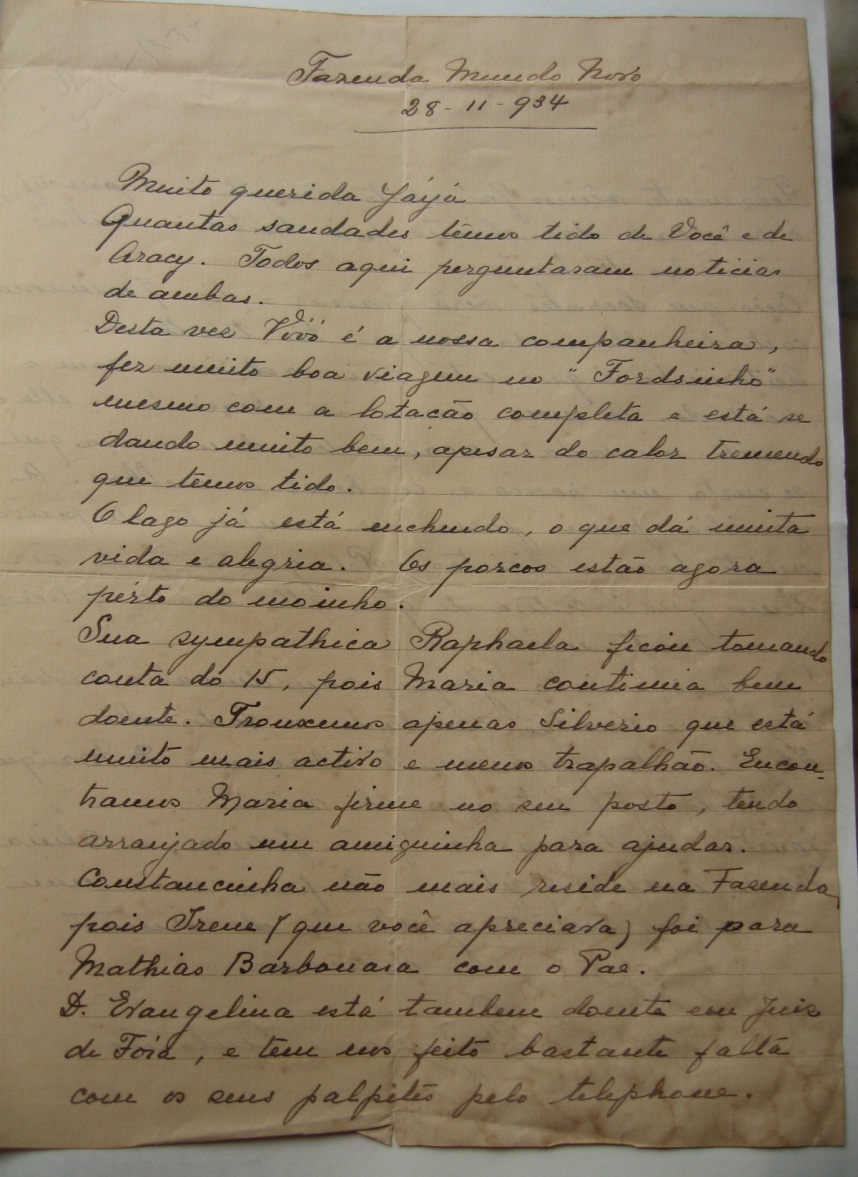 Fazenda Mundo Novo
28-11-934
Muito querida Yáyá
Quantas saudades têmos tido de Você e de
Aracy. Todos aqui perguntaram noticias
de ambas.
Desta vez Vóvó é a nossa companheira,
fez muito boa viagem no "Fordsinho"
mesmo com a lotação completa e está se
dando muito bem, apesar do calor tremendo
que têmos tido.
O lago já está enchendo, o que dá muita
vida e alegria. Os porcos estão agora
pérto do moinho.
Sua sympathica Raphaela ficou tomando
conta do 15, pois Maria continua bem
doente. Trouxemos apenas Silverio que está
muito mais activo e menos trapalhão. Encon-
tramos Maria firme no seu posto, tendo
arranjado um amiguinha para ajudar.
Constancinha não mais reside na Fazenda,
pois Irene (que você apreciava) foi para
Mathias Barbonara com o Pae.
D. Evangelina está tambem doente em Juiz
de Fóra, e tem nos feito bastante falta
com os seus palpites pelo telephone.